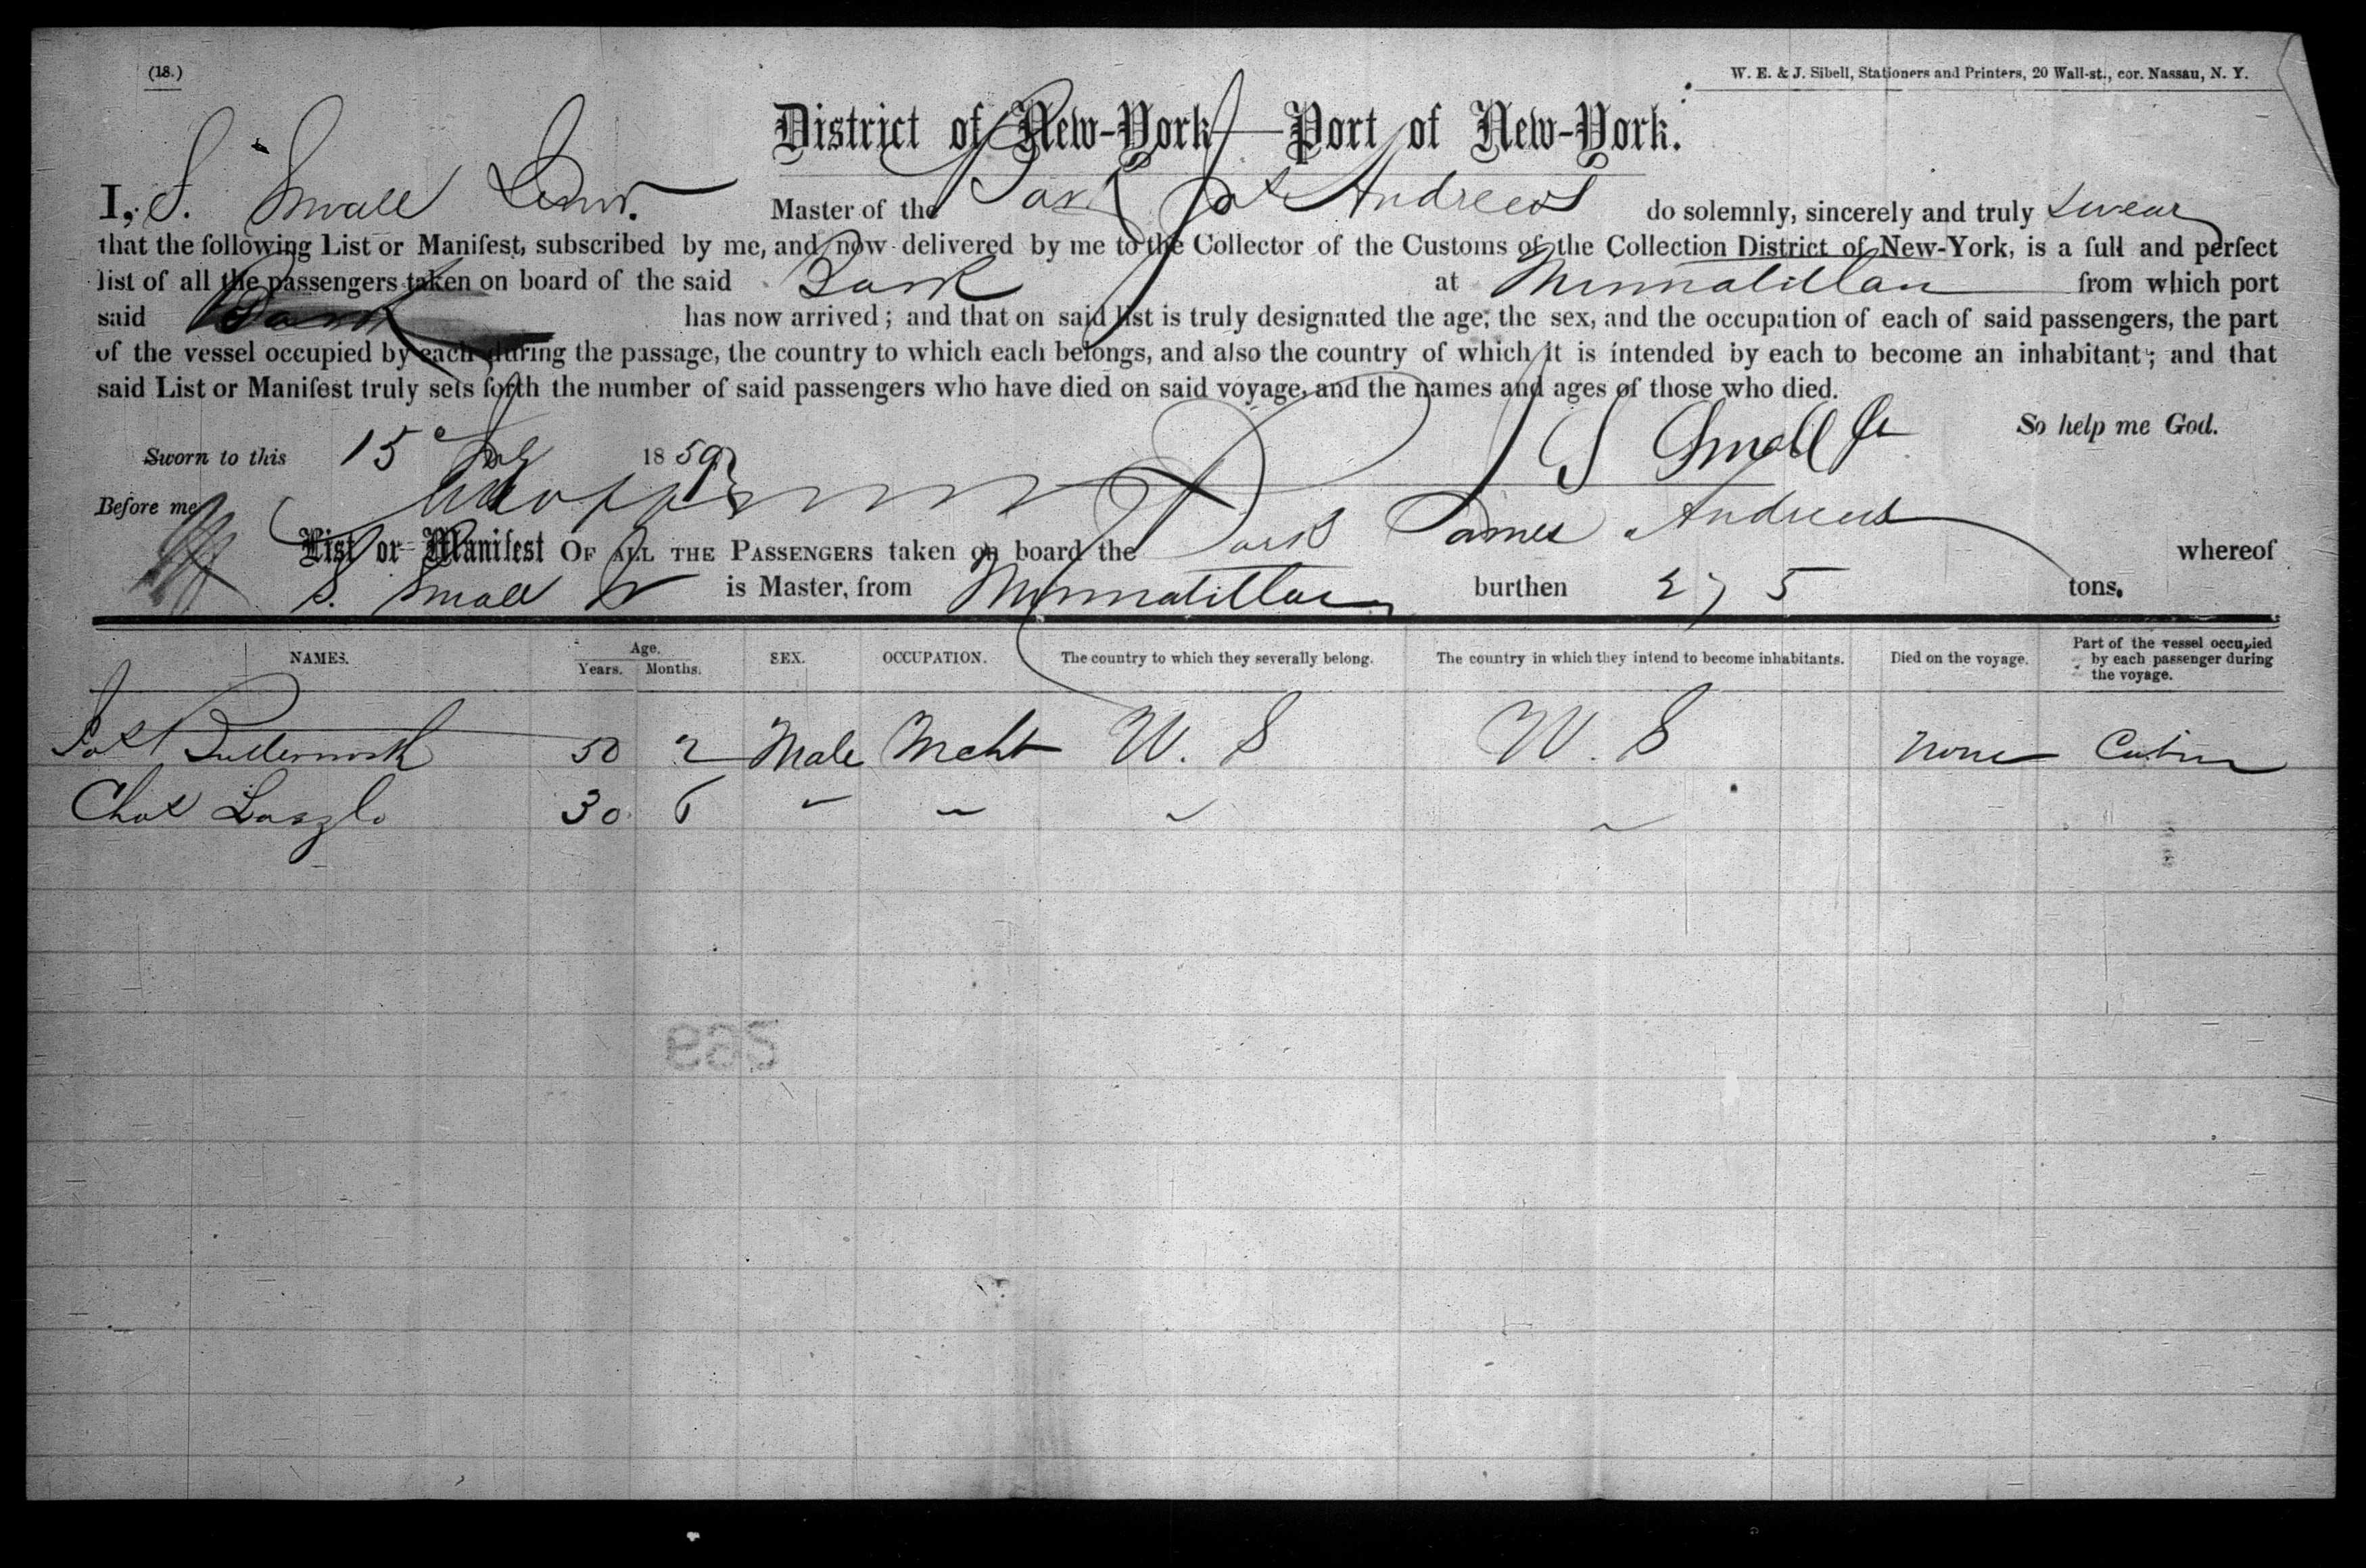 (18.)
W. E. & J. Sibell, Stationers and Printers, 20 Wall-st., cor. Nassau, N. Y.
District of New-York—Port of New-York.
I, S. Small Junr. Master of the Bark Jas Andrews do solemnly, sincerely and truly swear
that the following List or Manifest, subscribed by me, and now delivered by me to the Collector of the Customs of the Collection District of New-York, is a full and perfect
list of all the passengers taken on board of the said Bark at Minnatitlan from which port
said Bark has now arrived; and that on said list is truly designated the age, the sex, and the occupation of each of said passengers, the part
of the vessel occupied by each during the passage, the country to which each belongs, and also the country of which it is intended by each to become an inhabitant; and that
said List or Manifest truly sets forth the number of said passengers who have died on said voyage, and the names and ages of those who died.
So help me God.
Sworn to this 15 1859 S Small Jr
Before me
List or Manifest OF ALL THE PASSENGERS taken on board the Bark James Andrews whereof
S. Small Jr is Master, from Minnatitlan burthen 275 tons.
NAMES. Age. Years. Months. SEX. OCCUPATION. The country to which they severally belong. The country in which they intend to become inhabitants. Died on the voyage. Part of the vessel occupied by each passenger during the voyage.
Jas Butterworth 50 2 Male Mcht U. S U. S None Cabin
Chas Laszlo 30 6 " " " "
259